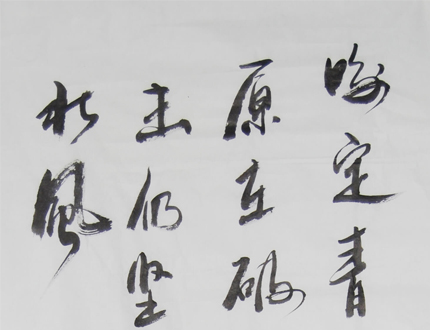 咬定青
原在破
击仍坚
北風